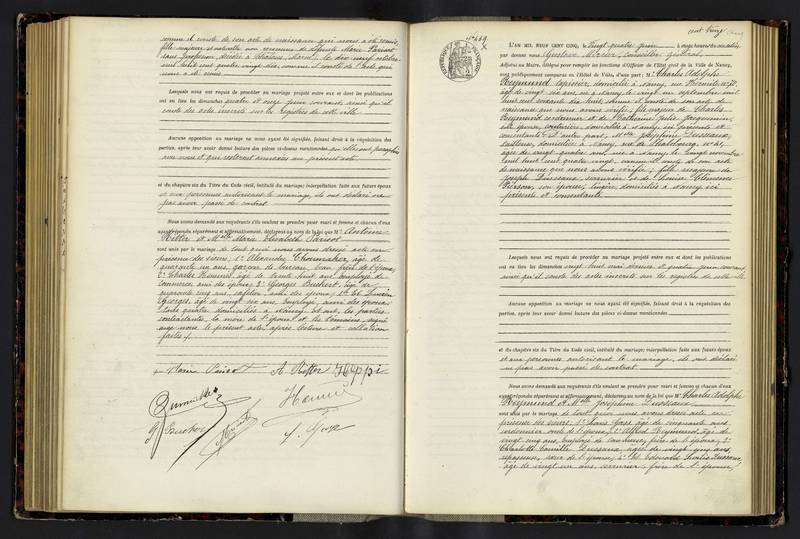 comme il conste de son acte de naissance qui nous a été remis,
fille majeure et naturelle non reconnue de défunte Marie Parisot
sans profession, décédée à
huit cent quatre vingt dix, comme il conste de l'acte qui
nous a été remis
Lesquels nous ont requis de procéder au mariage projeté entre eux et dont les publications
ont eu lieu les dimanches quatre et onze juin courant, ainsi qu'il
conste des actes inscrits sur les registres de cette ville
Aucune opposition au mariage ne nous ayant été signifiée, faisant droit à la réquisition des
parties, après leur avoir donné lecture des pièces ci-dessus mentionnées
et qui resteront annexées au présent acte
et du chapitre six du Titre du Code civil, intitulé du mariage; interpellation faite aux futurs époux
et aux personnes autorisant le mariage, ils ont déclaré ne
pas avoir passé de contrat
Nous avons demandé aux requérants s'ils veulent se prendre pour mari et femme et chacun d'eux
ayant répondu séparément et affirmativement, déclarons au nom de la loi que Mr Antoine
Ritter et Melle Marie Elisabeth Parisot
sont unis par le mariage de tout quoi nous avons dressé acte en
présence des sieurs, 1° Alexandre Choumaker, âgé de
quarante un ans, garçon de bureau, beau frère de l'époux;
2° Charles Hommé, âgé de trente huit ans, employé de
commerce, ami des époux; 3° Georges Beuchert, âgé de
quarante cinq ans, cafetier, ami des époux;
Georges, âgé de vingt six ans, employé, ami des époux
tous quatre domiciliés à Nancy. Et ont, les parties
contractantes, la mère de l'époux et les témoins, signé
avec nous le présent acte après lecture et collation
faites.
Marie Parisot A Ritter
N° 469
cent vingt cinq
L'AN MIL NEUF CENT CINQ, le Vingt quatre juin à onze heures du matin
par devant nous Gustave Mercier, conseiller général,
Adjoint au Maire, délégué pour remplir les fonctions d'Officier de l'Etat civil de la Ville de Nancy,
sont publiquement comparus en l'Hôtel de Ville, d'une part: Mr Charles Adolphe
Reymund, tapissier, domicilié à Nancy, rue
âgé de vingt six ans, né à Nancy le vingt un septembre mil
huit cent soixante dix huit, comme il conste de son acte de
naissance que nous avons vérifié; fils majeur de Charles
Reymund, cordonnier et de Catherine Julie Jacquemin,
elle femme, couturière, domiciliés à Nancy, ici présents et
consentants; D'autre part, Melle Joséphine Dussaux,
tailleuse, domiciliée à Nancy, rue de Strasbourg, n° 61,
âgée de vingt quatre ans, née à Nancy le vingt novembre
mil huit cent quatre vingt, comme il conste de son acte
de naissance que nous avons vérifié; fille majeure de
Joseph Dussaux, serrurier et de Louise Clémence
son épouse, lingère, domiciliés à Nancy, ici
présents et consentants
Lesquels nous ont requis de procéder au mariage projeté entre eux et dont les publications
ont eu lieu les dimanches vingt huit mai dernier et quatre juin courant
ainsi qu'il conste des actes inscrits sur les registres de cette ville
Aucune opposition au mariage ne nous ayant été signifiée, faisant droit à la réquisition des
parties, après leur avoir donné lecture des pièces ci-dessus mentionnées
et du chapitre six du Titre du Code civil, intitulé du mariage; interpellation faite aux futurs époux
et aux personnes autorisant le mariage, ils ont déclaré
ne pas avoir passé de contrat
Nous avons demandé aux requérants s'ils veulent se prendre pour mari et femme et chacun d'eux
ayant répondu séparément et affirmativement, déclarons au nom de la loi que Mr Charles Adolphe
Reymund et Melle Joséphine Dussaux
sont unis par le mariage, de tout quoi nous avons dressé acte en
présence des sieurs, 1° Louis âgé de cinquante ans,
cordonnier, oncle de l'époux; 2° Alfred Reymund, âgé de
vingt cinq ans, employé de commerce, frère de l'époux; 3°
Charlotte Camille Dussaux, âgée de vingt cinq ans,
repasseuse, sœur de l'épouse; 4° Edouard Dussaux,
âgé de vingt un ans, serrurier, frère de l'épouse;